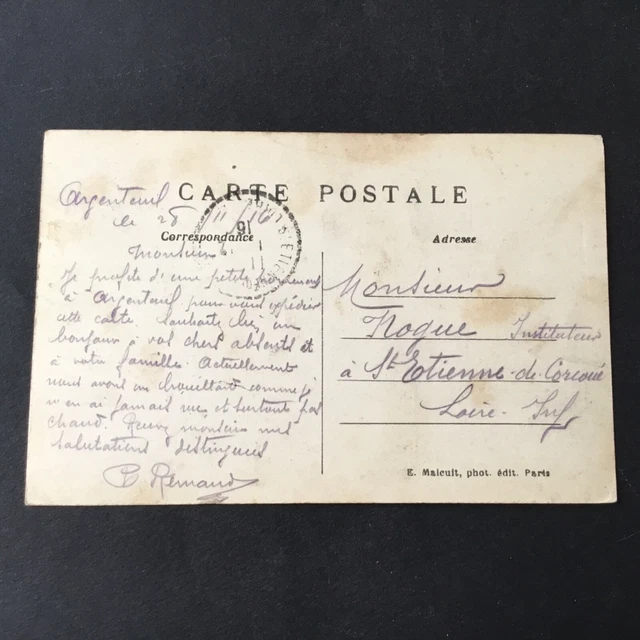 CARTE POSTALE
Correspondance
Adresse
Argenteuil
le 28 / 11 / 16
Monsieur
Je profite d'une petite
à Argenteuil pour vous expédier
cette carte. Souhaite chez un
bonjour à vos chers absents et
à votre famille. Actuellement
nous avons un brouillard comme je
n'en ai jamais vu et surtout pas
chaud. Recevez monsieur mes
salutations distingués
Renaud
Monsieur
Instituteur
à St Etienne-de-Corcoué
Loire-Inf
E. Malcuit, phot. édit. Paris